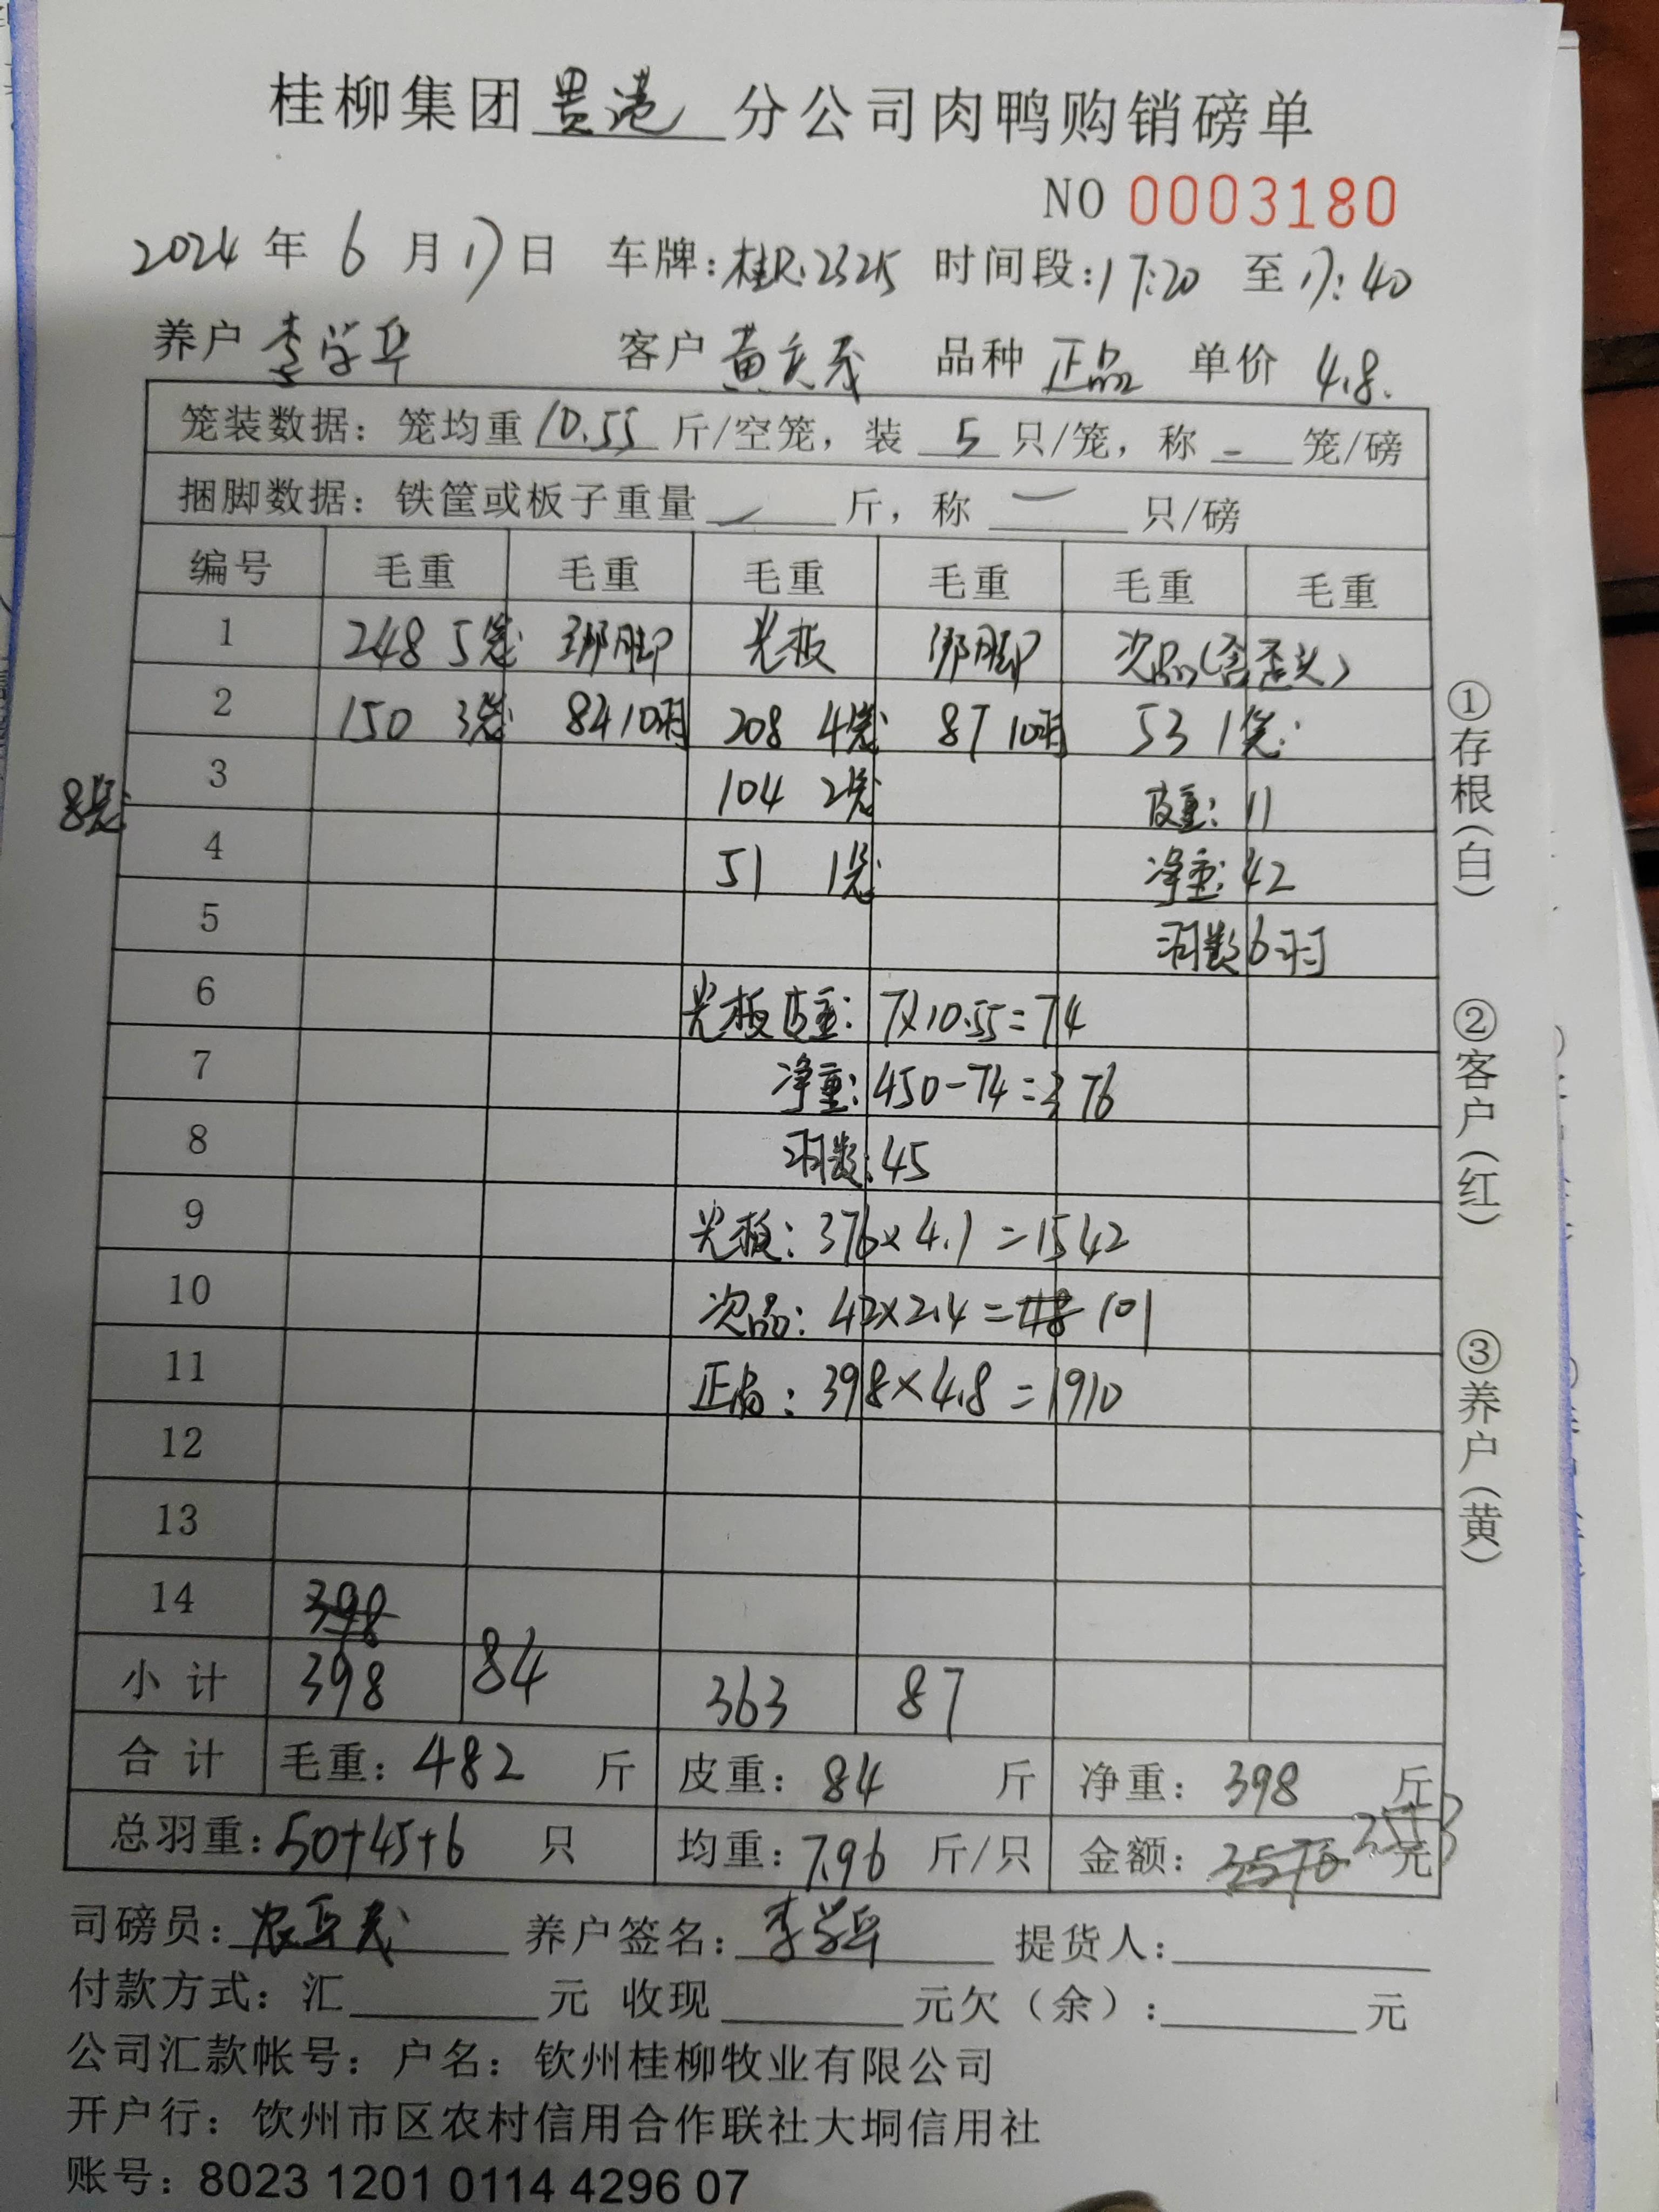 桂柳集团贵港分公司肉鸭购销磅单
NO 0003180
2024年6月17日 车牌:桂R.2325 时间段:17:20 至17:40
养户 李学兵 客户 黄 品种 正品 单价 4.8.
笼装数据:笼均重10.55斤/空笼,装5只/笼,称-笼/磅
捆脚数据:铁筐或板子重量 斤,称 一 只/磅
编号 毛重 毛重 毛重 毛重 毛重 毛重
1 248 5笼 绑脚 光板 绑脚 次品(含歪头)
2 150 3笼 84 10羽 208 4笼 87 10羽 53 1笼
3 104 2笼 皮重: 11
8笼
4 51 1笼 净重: 42
5 羽数 6羽
6 光板皮重: 7×10.55=74
7 净重: 450-74=376
8 羽数: 45
9 光板: 376×4.1=1542
10 次品: 42×2.4=118 101
11 正品: 398×4.8=1910
12
13
14 398
小计 398 84 363 87
合计 毛重: 482 斤 皮重: 84 斤 净重: 398 斤
总羽重: 50+45+6 只 均重: 7.96 斤/只 金额: 3570 元
司磅员: 养户签名: 李学兵 提货人:
付款方式: 汇 元 收现 元欠(余): 元
公司汇款帐号: 户名: 钦州桂柳牧业有限公司
开户行: 钦州市区农村信用合作联社大垌信用社
账号: 8023 1201 0114 4296 07
①存根(白)
②客户(红)
③养户(黄)